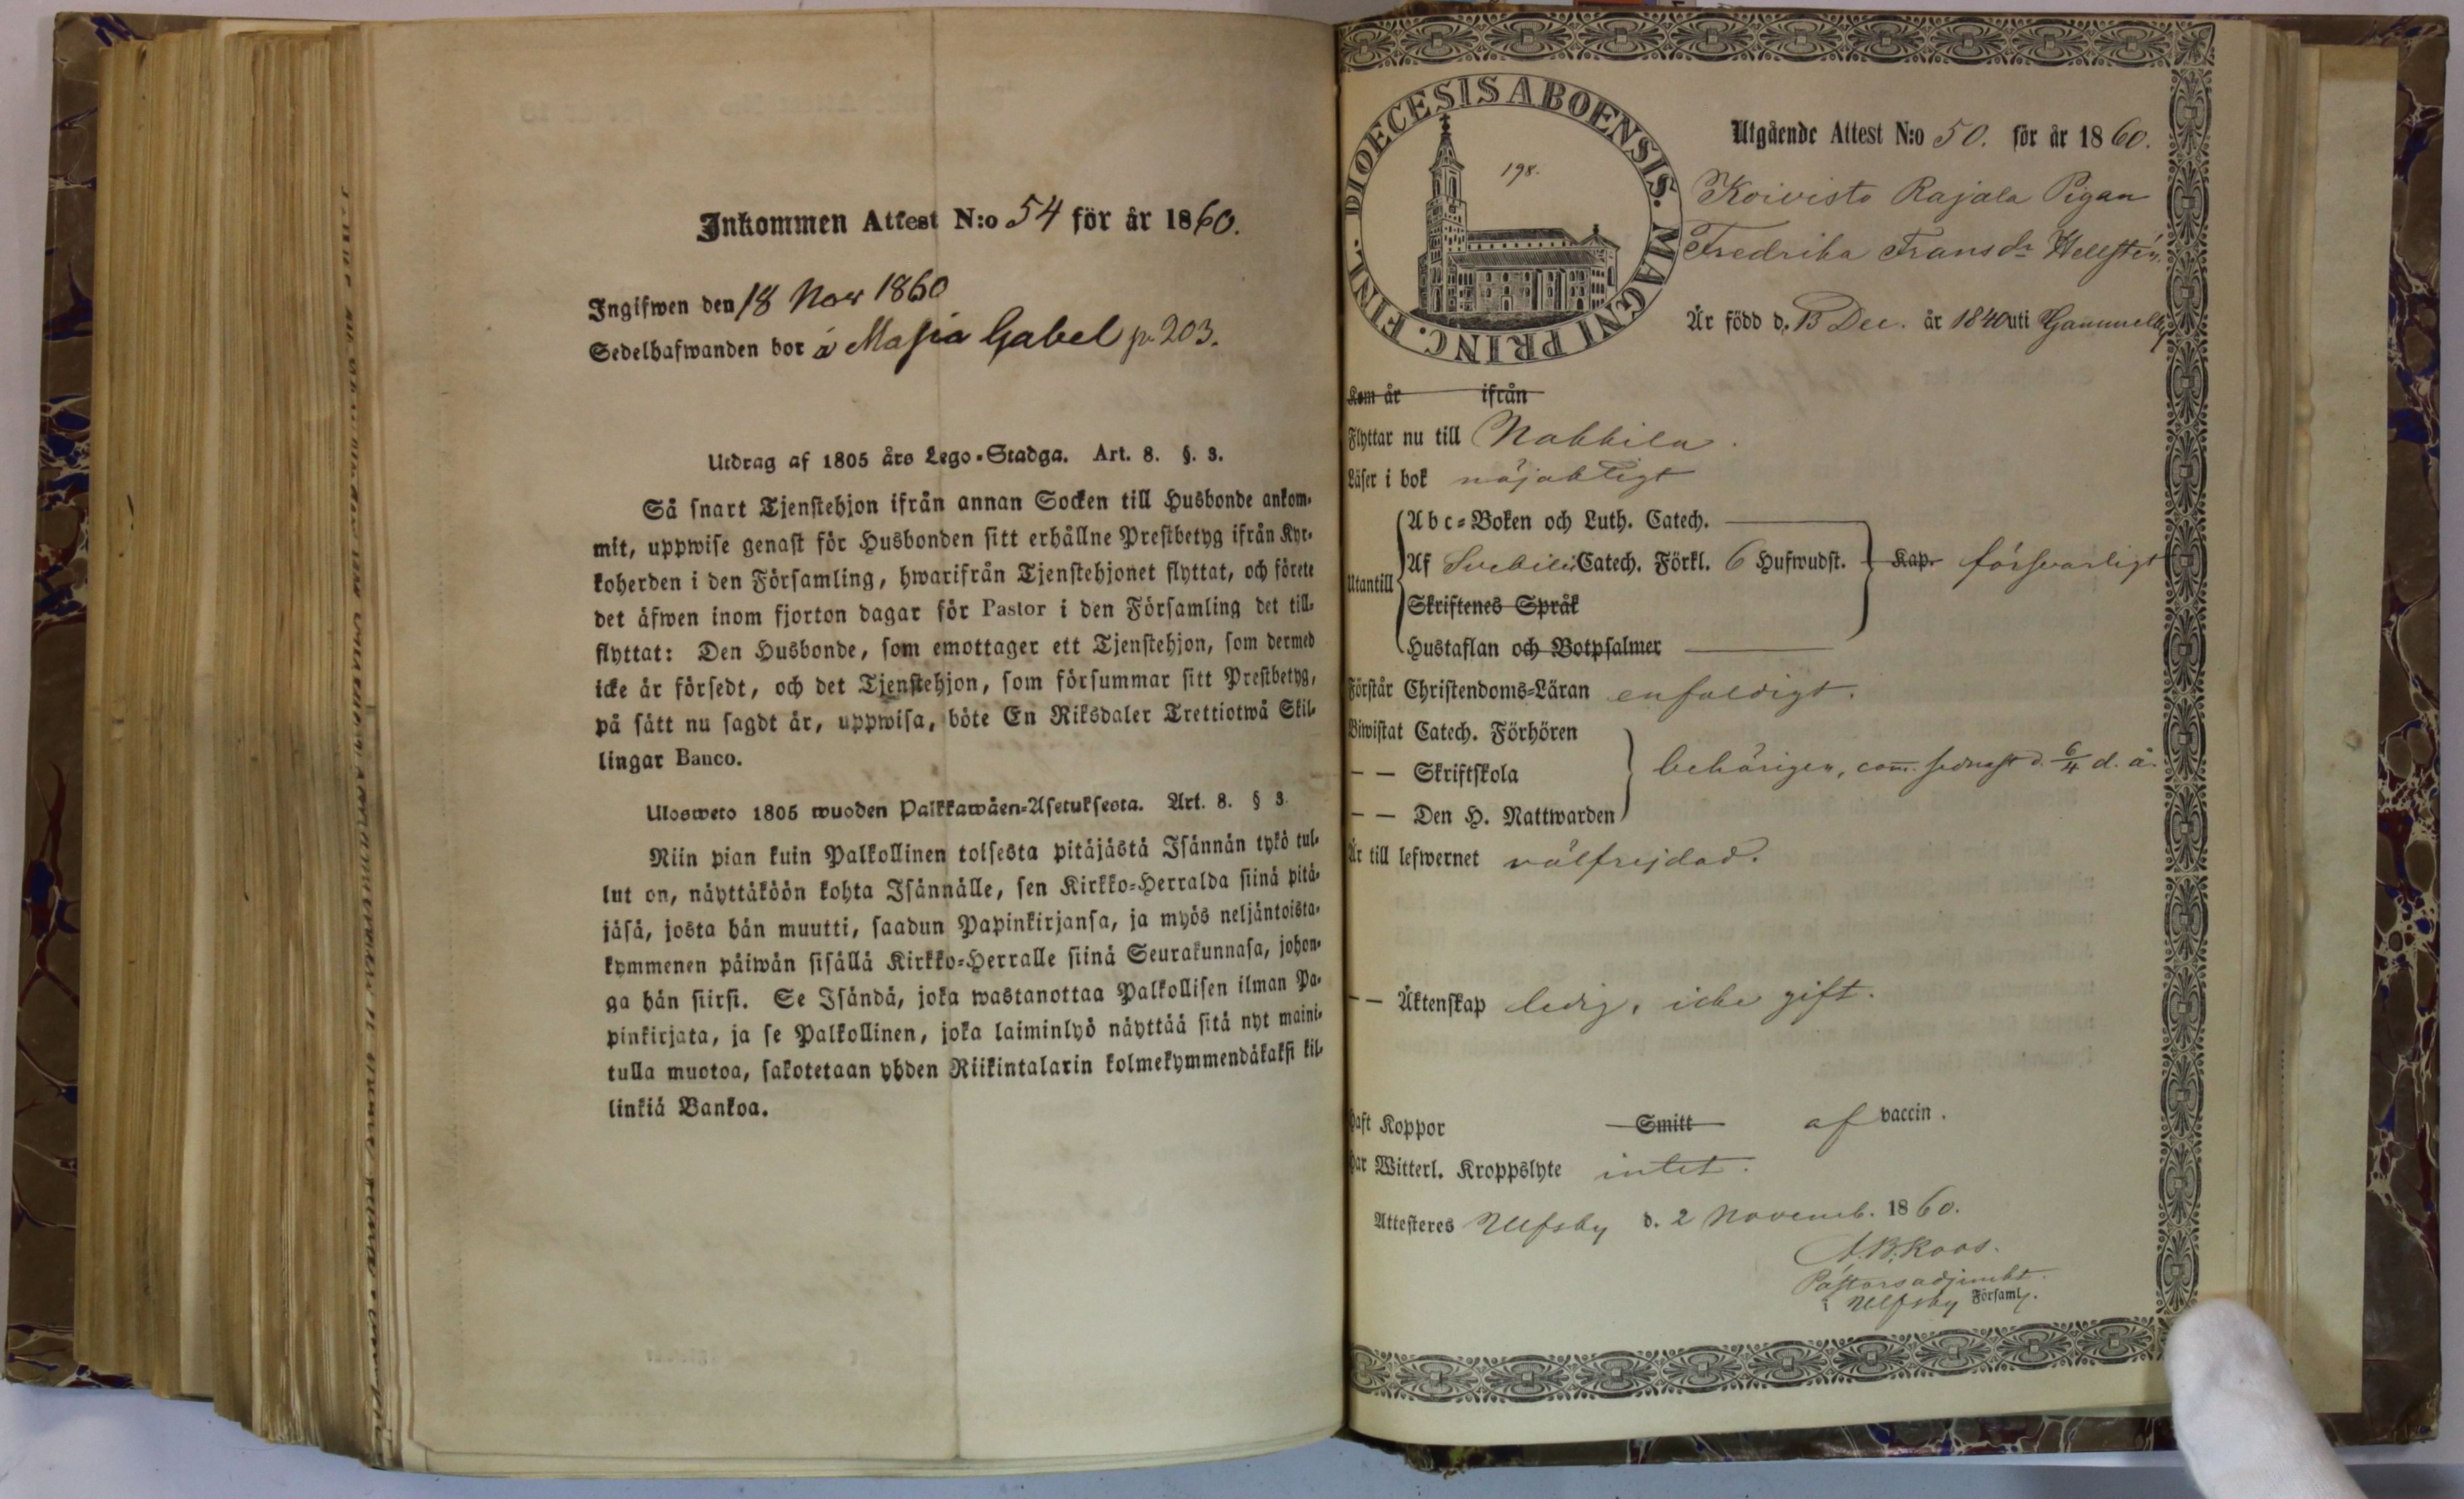 Inkommen Attest N:o 54 för år 1860.
Ingifwen den 18 Nov 1860
Sedelhafwanden bor å Masia Gabel p. 203.
Utdrag af 1805 års Lego-Stadga. Art. 8. §. 3.
Så snart Tjenstehjon ifrån annan Socken till Husbonde ankom-
mit, uppwise genast för Husbonden sitt erhållne Prestbetyg ifrån Kyr-
koherden i den Församling, hwarifrån Tjenstehjonet flyttat, och förete
det äfwen inom fjorton dagar för Pastor i den Församling det till-
flyttat: Den Husbonde, som emottager ett Tjenstehjon, som dermed
icke är försedt, och det Tjenstehjon, som försummar sitt Prestbetyg,
på sätt nu sagdt är, uppwisa, böte En Riksdaler Trettiotwå Skil-
lingar Banco.
Ulosweto 1805 wuoden Palkkawäen-Asetuksesta. Art. 8. § 3.
Niin pian kuin Palkollinen toisesta pitäjästä Isännän tykö tul-
lut on, näyttäköön kohta Isännälle, sen Kirkko-Herralda siinä pitä-
jäsä, josta hän muutti, saadun Papinkirjansa, ja myös neljäntoista-
kymmenen päiwän sisällä Kirkko-Herralle siinä Seurakunnasa, johon-
ga hän siirsi. Se Isändä, joka wastanottaa Palkollisen ilman Pa-
pinkirjata, ja se Palkollinen, joka laiminlyö näyttää sitä nyt maini-
tulla muotoa, sakotetaan yhden Riikintalarin kolmekymmendäkaksi kil-
linkiä Bankoa.
DIOECESIS ABOENSIS. MAGNI PRINC. FINL.
198.
Utgående Attest N:o 50. för år 1860.
Koivisto Rajala Pigan
Fredrika Fransdr Hellstén.
Är född d. 13 Dec. år 1840 uti Gammelby
Kom år ifrån
Flyttar nu till Nakkila.
Läser i bok nöjaktigt
Utantill
Abc-Boken och Luth. Catech.
Af Svebilii Catech. Förkl. 6 Hufwudst. Kap. försvarligt
Skriftenes Språk
Hustaflan och Botpsalmer
Förstår Christendoms-Läran enfaldigt.
Biwistat Catech. Förhören
— — Skriftskola behörigen, com. sednast d. 6/4 d. å.
— — Den H. Nattwarden
Är till lefwernet välfrejdad.
— — Äktenskap ledig, icke gift.
Haft Koppor Smitt af vaccin.
Har Witterl. Kroppslyte intet.
Attesteres Ulfsby d. 2 Novemb. 1860.
A.B. Roos.
Pastorsadjunkt
i Ulfsby Församl.